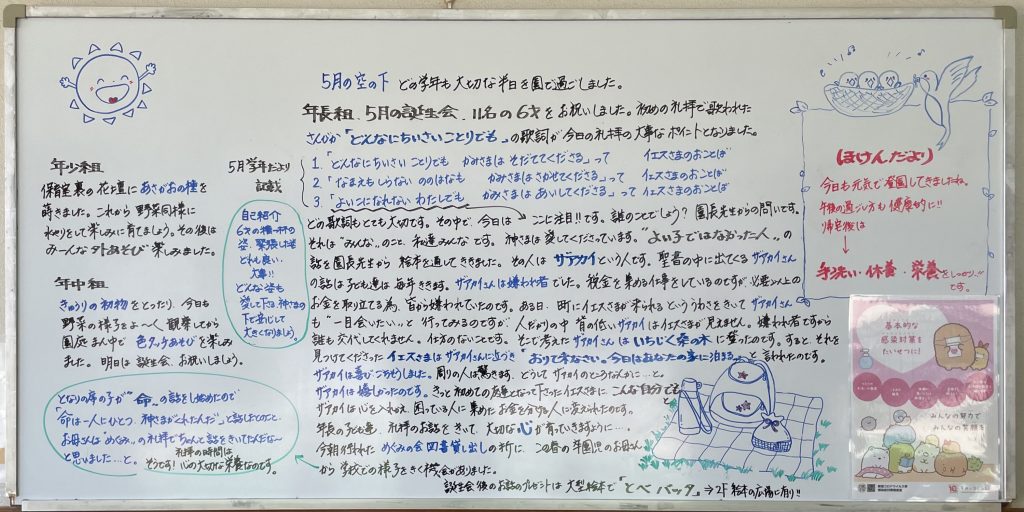 5月の空の下 どの学年も大切な半日を園で過ごしました。
年長組 5月の誕生会、11名の6才をお祝いしました。初めの礼拝で歌われた
さんびか「どんなにちいさいことりでも」の歌詞が今日の礼拝の大事なポイントとなりました。
5月学年だより
記載
1.「どんなにちいさいことりでも かみさまは そだててくださる」って イエスさまのおことば
2.「なまえもしらない ののはなも かみさまは さかせてくださる」って イエスさまのおことば
3.「よいこになれない わたしでも かみさまは あいしてくださる」って イエスさまのおことば
どの歌詞もとても大切です。その中で、今日は ここに注目!!です。誰のことでしょう? 園長先生からの問いです。
それは"みんな"のこと、私達みんなです。神さまは愛してくださっています。"よい子ではなかった人"の
話を園長先生から 絵本を通してききました。その人は ザアカイという人です。聖書の中に出てくるザアカイさん
の話は子ども達は毎年ききます。ザアカイさんは嫌われ者でした。税金を集める仕事をしているのですが、必要以上の
お金を取り立てる為、皆から嫌われていたのです。ある日、町にイエスさまが来られるといううわさをきいて ザアカイさん
も"一目会いたい"と 行ってみるのですが 人だかりの中 背の低いザアカイはイエスさまが見えません。嫌われ者ですから
誰も交代してくれません。仕方のないことです。そこで考えたザアカイさんは いちじく桑の木に登ったのです。すると、それを
見つけてくださったイエスさまはザアカイさんに近づき「おりて来なさい。今日はあなたの家に泊まる。」と言われたのです。
ザアカイは喜びこうふんしました。周りの人は驚きます。どうして ザアカイのところなんかに…と。
ザアカイは嬉しかったのです。きっと初めての友達となって下さったイエスさまに、こんな自分でもと
ザアカイは心を入れかえ 困っている人に集めたお金を分ける人に変えられたのです。
年長の子ども達、礼拝のお話をきいて、大切な心が育っていきますように…。
今朝行われた めぐみの会図書貸し出しの折に この春の卒園児のお母さん
から 学校での様子をきく機会がありました。
誕生会後のお話のプレゼントは 大型絵本で「とべバッタ」⇒2F 絵本の広場に有り!!
年少組
保育室裏の花壇に あさがおの種を
蒔きました。これから野菜同様に
水やりをして楽しみに育てましょう。その後は
みーんな外あそび楽しみました。
年中組
きゅうりの初物をとったり、今日も
野菜の様子をよ〜く観察してから
園庭まん中で 色タッチあそびを楽しみ
ました。明日は誕生会、お祝いしましょう。
自己紹介
6才の精一杯の
姿、緊張した姿
どれも良い、
大事!!
どんな姿も
愛して下さる神さまの
下で安心して
大きくなりましょう
となりの席の子が"命"の話をし始めたので
「命は一人にひとつ、神さまがくれたんだ」と話してたのだと。
お母さんは"めぐみ"の礼拝でちゃんと話をきいてたんだな〜
と思いました…と。
礼拝の時間は
そうです!心の大切な栄養なのです。
ほけんだより
今日も元気で登園してきましたね。
午後の過ごし方も健康的に!!
帰宅後は
手洗い・休養・栄養をしっかり!!
です。
基本的な
感染対策を
たいせつに!
みんなの努力で
みんなの笑顔を